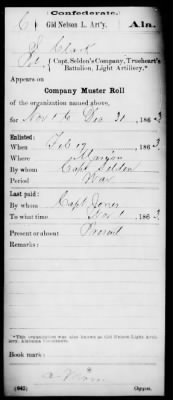 Confederate.
C | Gid Nelson L. Art'y. | Ala.
J Clark
Pvt, { Capt. Selden's Company, Trueheart's
Battalion, Light Artillery.*
Appears on
Company Muster Roll
of the organization named above,
for Nov 1 to Dec 31, 1863.
Enlisted:
When Feb 19, 1863.
Where Marion
By whom Capt Selden
Period War
Last paid:
By whom Capt Jones
To what time Nov 1, 1863.
Present or absent Present
Remarks:
*This organization was also known as Gid Nelson Light Artillery, Alabama Volunteers.
Book mark:
(642)
Copyist.